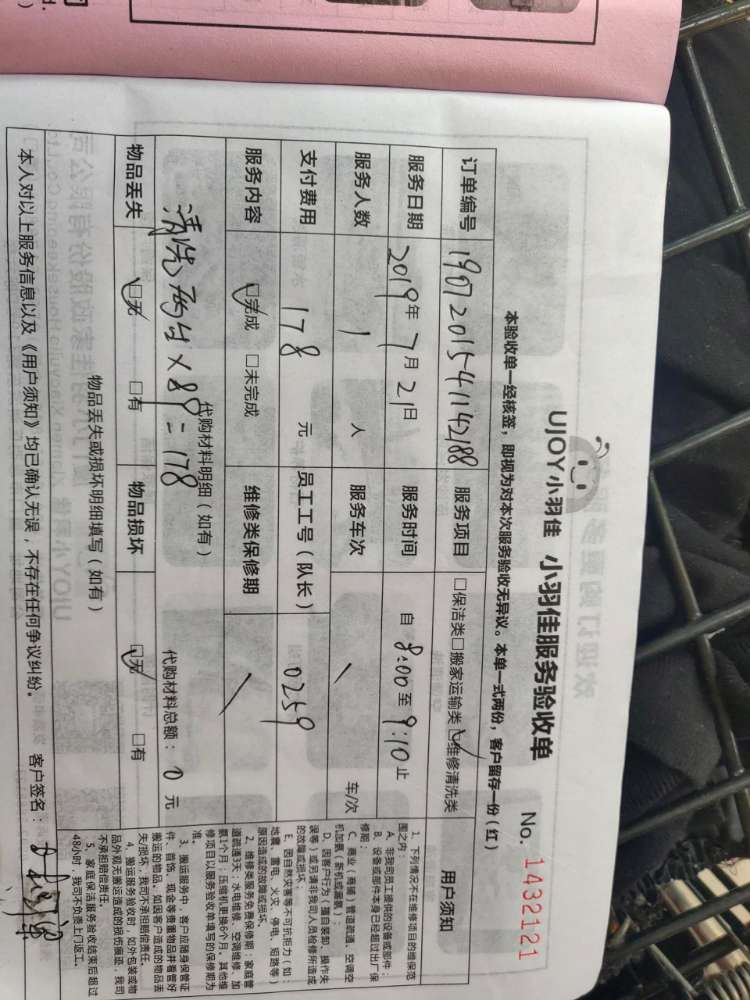 UJOY小羽佳 小羽佳服务验收单 No. 1432121
本验收单一经核签，即视为对本次服务验收无异议。本单一式两份，客户留存一份（红）
订单编号 1907201541142188 服务项目 □保洁类□搬家运输类☑维修清洗类
服务日期 2019年7月21日 服务时间 自 8:00至 9:10止
服务人数 1 人 服务车次 \ 车/次
支付费用 178 元 员工工号（队长） 0259
服务内容 ☑完成 □未完成 维修类保修期 \
代购材料明细（如有） 代购材料总额：0 元
×89=178
物品丢失 ☑无 □有 物品损坏 ☑无 □有
物品丢失或损坏明细填写（如有）
本人对以上服务信息以及《用户须知》均已确认无误，不存在任何争议纠纷。 客户签名：
用户须知
1、下列情况不在维修项目的维保范
围之内：
A、非我司员工提供的设备或部件；
B、设备或部件本身已经超过出厂保
修期；
C、商业（商铺）管道疏通，空调空
机加氨（新机或漏氨）；
D、因客户行为（擅自装卸、操作失
误等）或另请非我司人员检修所造成
的故障或损坏；
E、因自然灾害等不可抗拒力（如：
地震、雷电、火灾、停电、短路等）
原因造成的故障或损坏。
2、维修类服务免费保修期：家庭管
道疏通3天；水电维修、空调维修、加
氨1个月；压缩机更换6个月。其他维
修项目以服务验收单填写的保修期为
准。
3、搬运服务中，客户应随身保管证
件、首饰、现金等贵重物品并看管好
搬运的物品。如因客户造成的物品丢
失/损坏，我司不承担赔偿责任。
4、搬运服务验收时，如外包装或物
品外观无搬运造成的损伤痕迹，我司
不承担赔偿责任。
5、家庭保洁服务验收结束后超过
48小时，我司不负责上门返工。